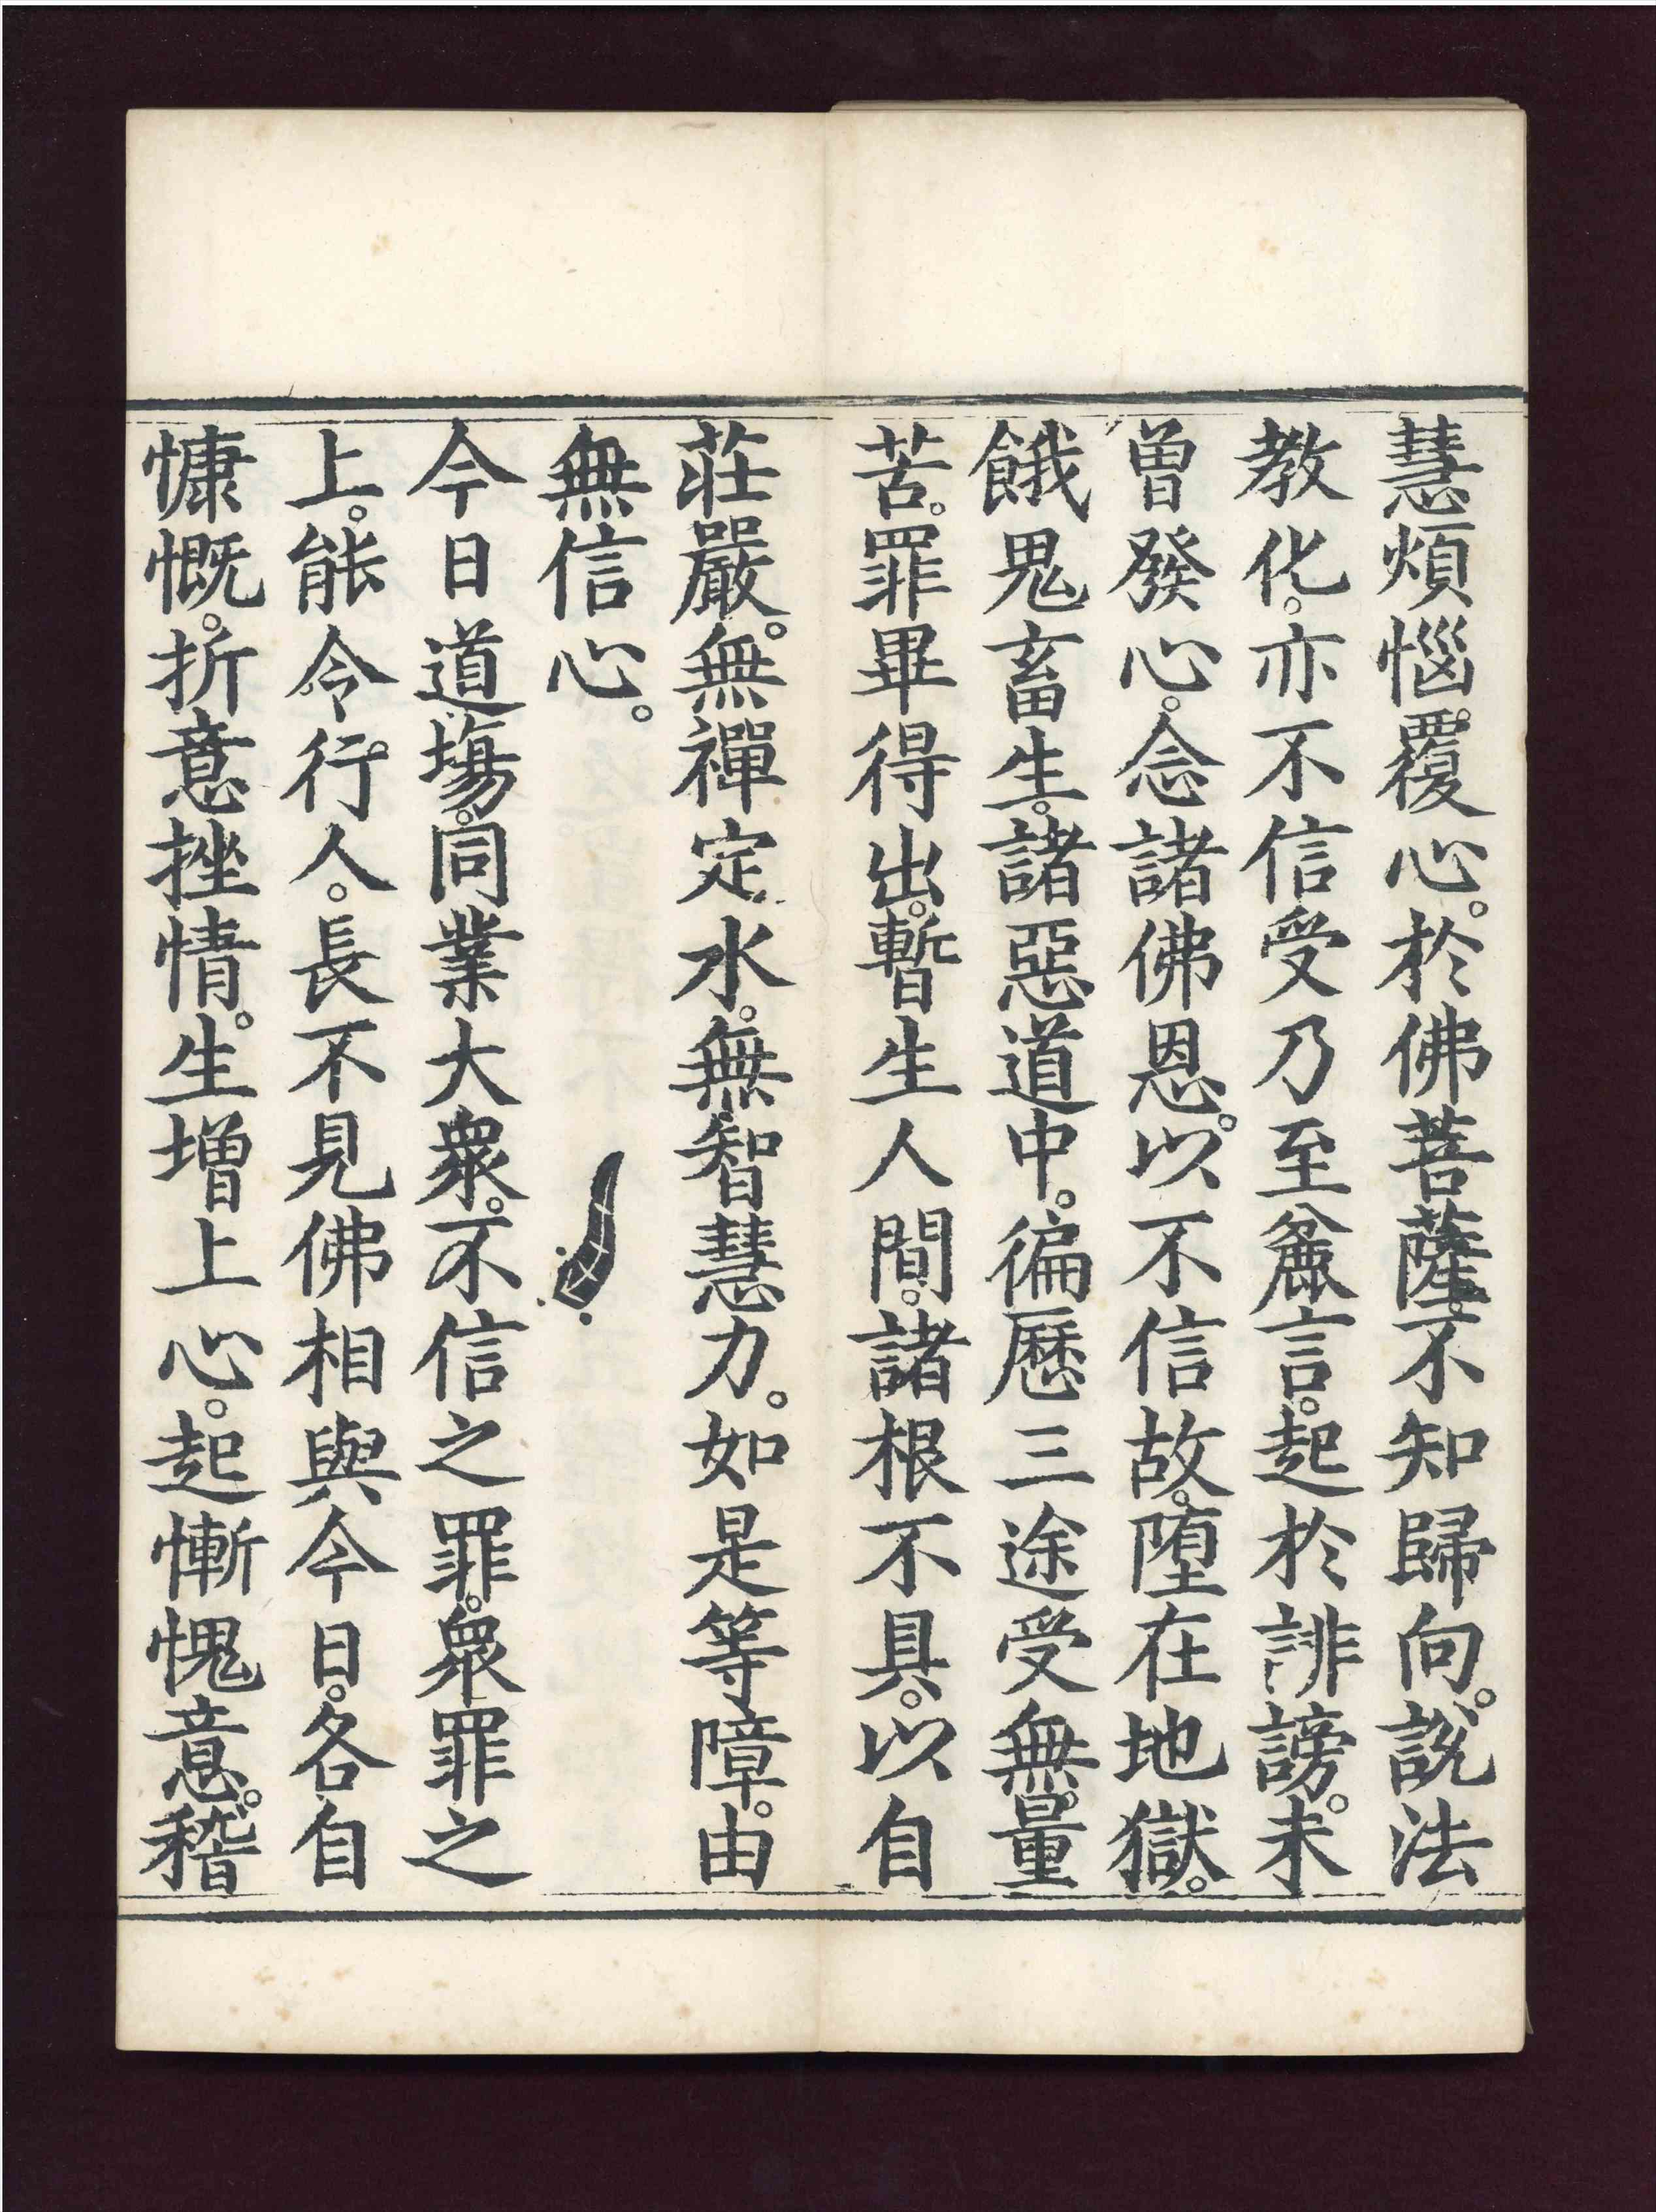 慧煩惱。覆心。於佛菩薩。不知歸向。說法
教化。亦不信受乃至麁言。起於誹謗。未
曾發心。念諸佛恩。以不信故。墮在地獄。
餓鬼畜生。諸惡道中。徧歷三途受無。量
苦。罪畢得出。暫生人間。諸根不具。以自
莊嚴。無禪定水。無智慧力。如是等障。由
無信心。
今日道場。同業大衆。不信之罪。衆罪之
上。能令行。人。長不見佛相與今日。各自
慷慨。折意挫情。生增上心。起慚愧意。稽